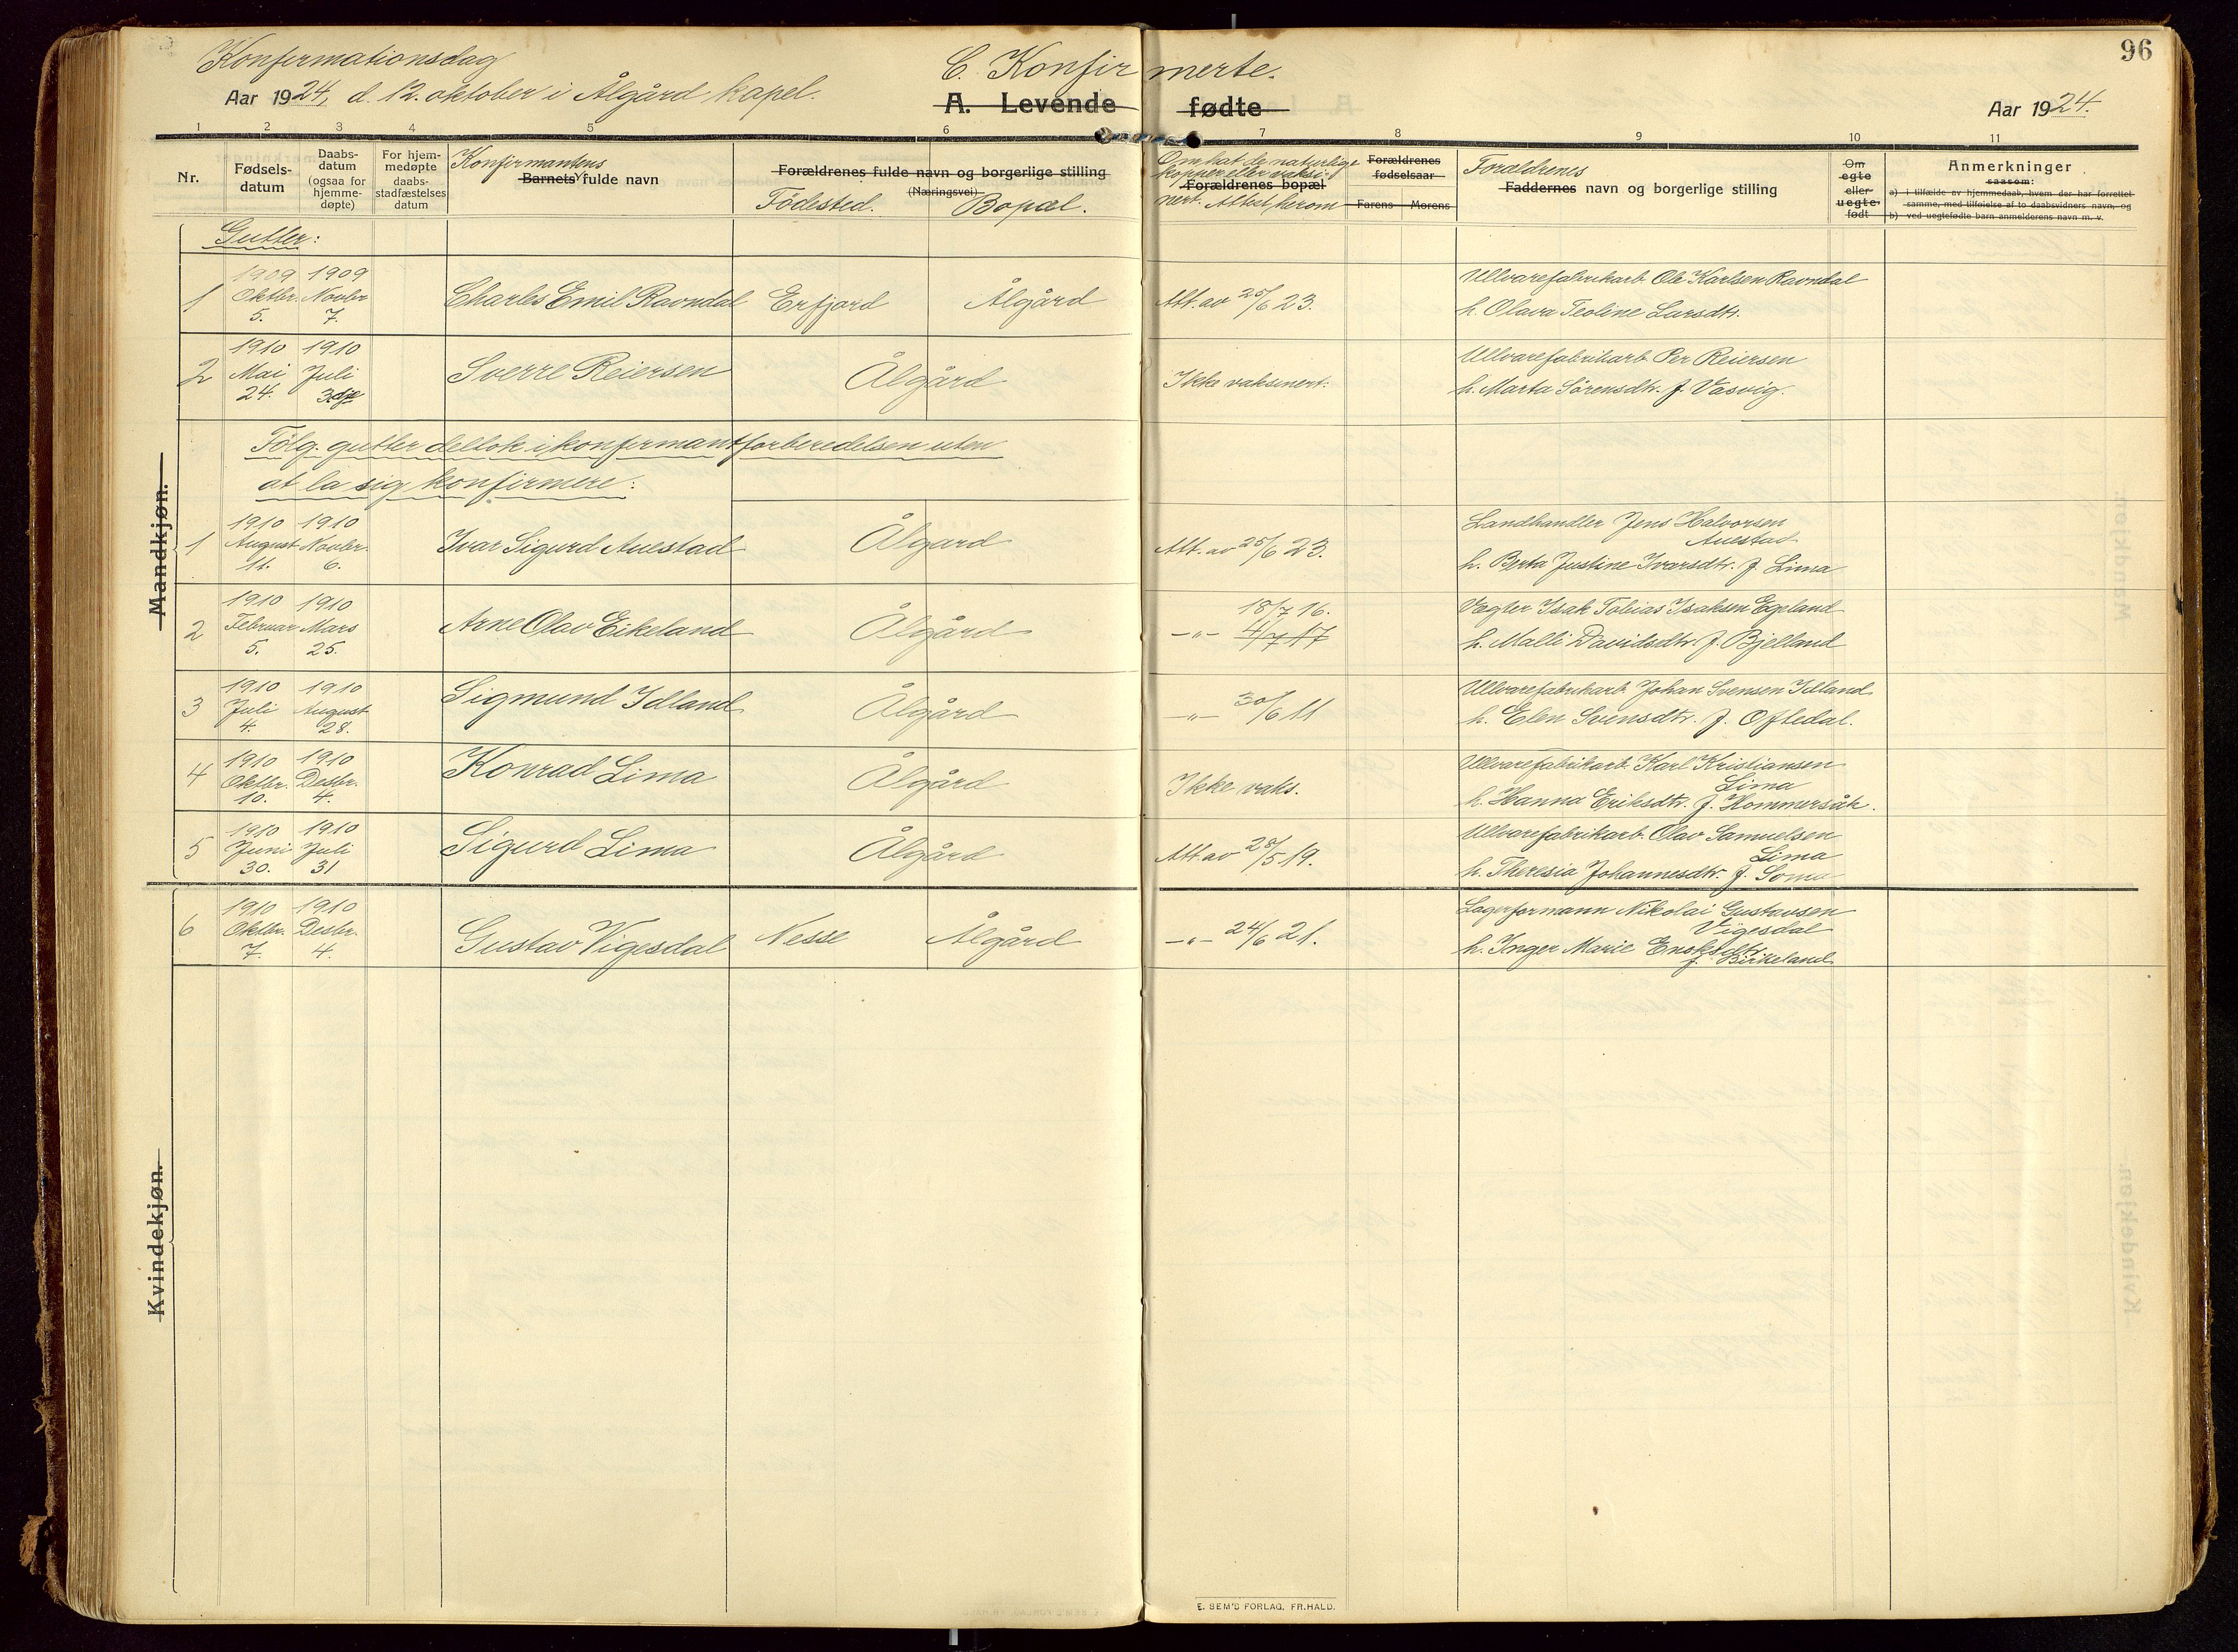 96
Konfirmationsdag
Aar 1924, d. 12. oktober i Ålgård kapel.
C. Konfirmerte.
A. Levende fødte
Aar 1924.
1 2 3 4 5 6 7 8 9 10 11
Nr.
Fødsels-
datum
Daabs-
datum
(ogsaa for
hjemme-
døpte)
For hjem-
medøpte
daabs-
stadfæstelses
datum
Konfirmantens
Barnets fulde navn
Forældrenes fulde navn og borgerlige stilling
(Næringsvei)
Fødested. Bopæl.
Om hat de naturlige
kopper eller vaksi-
Forældrenes bopæl
nert. Attest herom
Forældrenes
fødselsaar
Farens Morens
Forældrenes
Faddernes navn og borgerlige stilling
Om
egte
eller
uegte
født
Anmerkninger
saasom:
a) i tilfælde av hjemmedaab, hvem der har forrettet
samme, med tilføielse af to daabsvidners navn, og
b) ved uegtefødte barn anmelderens navn m. v.
Mandkjøn.
Gutter:
1909 1909
1 Oktbr. Novbr Charles Emil Ravndal Erfjord Ålgård Att. av 25/6 23.
5. 7.
Ullvarefabrikarb. Ole Karlsen Ravndal
h. Olava Teoline Larsdtr.
1910 1910
2 Mai Juli Sverre Reiersen Ålgård Ikke vaksinert.
24. 3dje
Ullvarefabrikarb. Per Reiersen
h. Marta Sørensdtr. f. Vasvig.
Følg. gutter deltok i konfirmantforberedelsen uten
at la sig konfirmere:
1910 1910
1 August Novbr. Ivar Sigurd Auestad Ålgård Att. av 25/6 23.
11. 6.
Landhandler Jens Halvorsen
Auestad
h. Berta Justine Ivarsdtr. f. Lima
1910 1910
2 Februar Mars Arne Olav Eikeland Ålgård
5. 25.
18/7 16.
—"— 4/7 17
Vægter Isak Tobias Isaksen Egeland
h. Malli Davidsdtr. f. Bjelland
1910 1910
3 Juli August Sigmund Idland Ålgård —"— 30/6 11
4. 28.
Ullvarefabrikarb. Johan Svensen Idland
h. Elen Svensdtr. f. Oftedal.
1910 1910
4 Oktbr. Desbr. Konrad Lima Ålgård Ikke vaks.
10. 4.
Ullvarefabrikarb. Karl Kristiansen
Lima
h. Hanna Eriksdtr. f. Hommersåk.
1910 1910
5 Juni Juli Sigurd Lima Ålgård Att. av 28/5 19.
30. 31
Ullvarefabrikarb. Olav Samuelsen
Lima
h. Theresia Johannesdtr. f. Soma
1910 1910
6 Oktbr. Desbr. Gustav Vigesdal Nesse Ålgård —"— 24/6 21.
7. 4.
Lagerformann Nikolai Gustavsen
Vigesdal
h. Inger Marie
f. Birkeland
Kvindekjøn.
E. SEM'S FORLAG, FR.HALD.